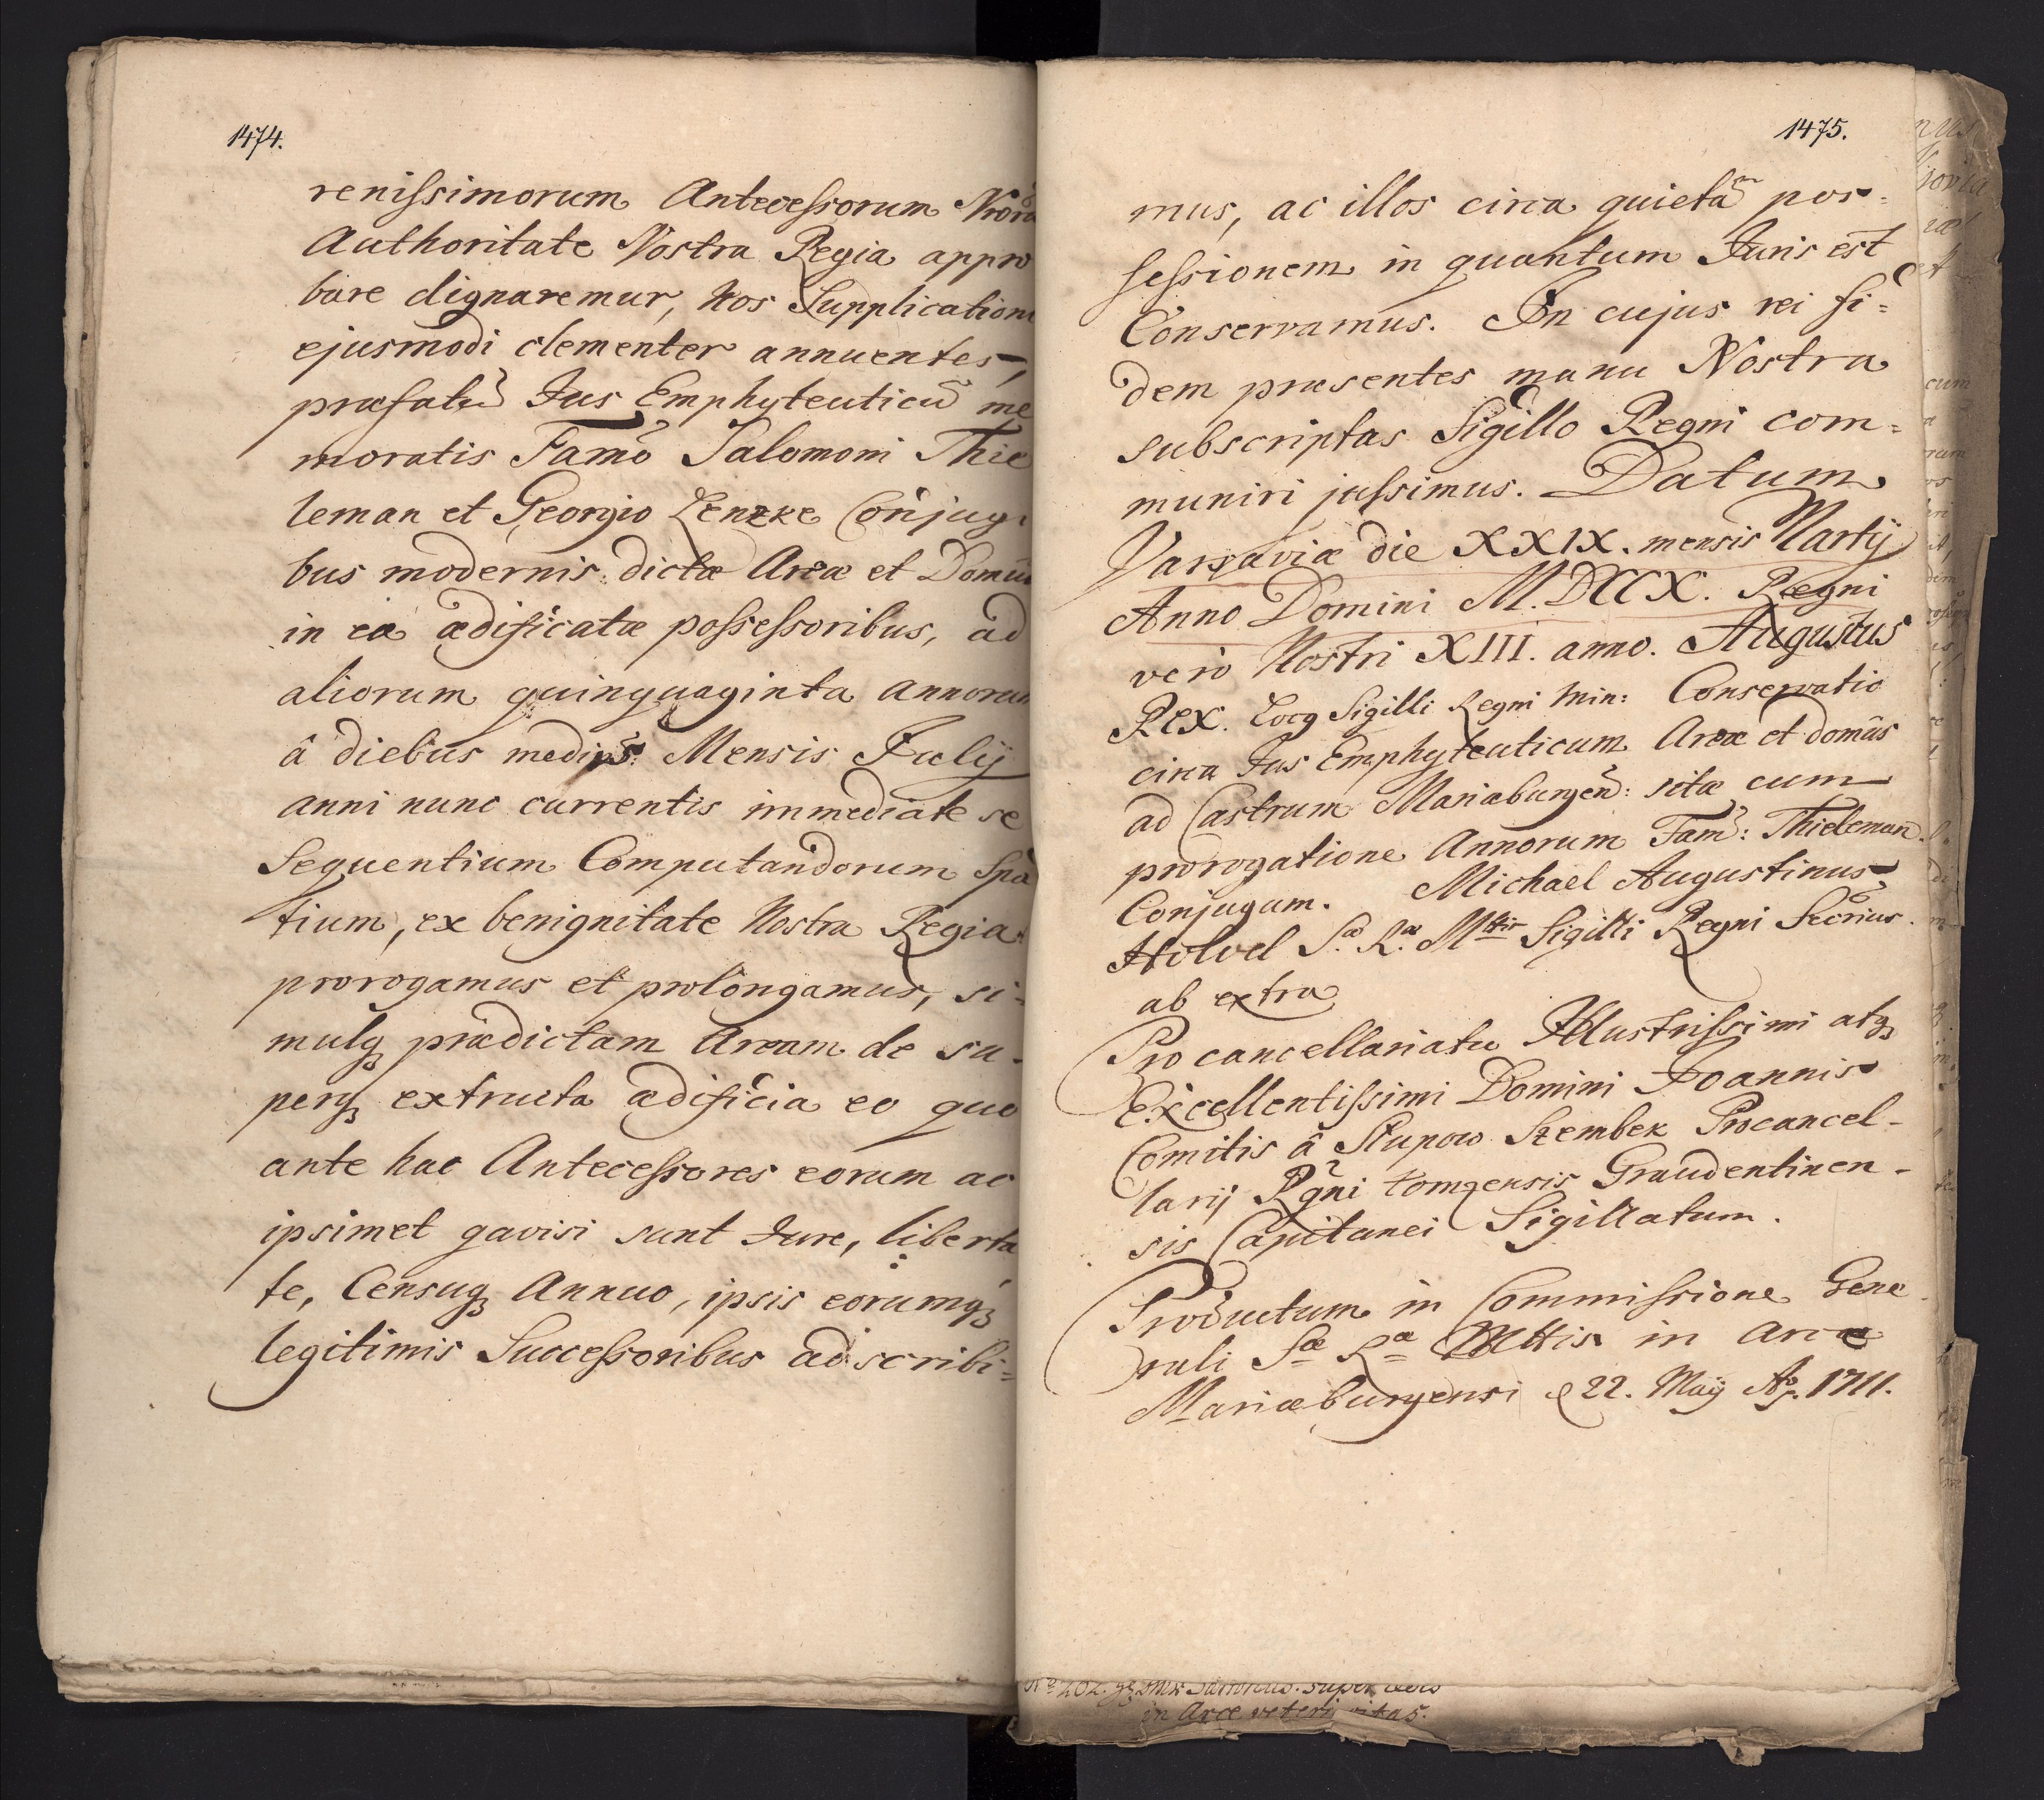 1474.
renissimorum Antecessorum Nrōrū
Authoritate Nostra Regia appro
bare dignaremur, Nos Supplicationi
ejusmodi clementer annuentes,
præfatū Jus Emphyteuticū me
moratis Famō Salomoni Thie
leman et Georgio Lenzke Conjugi
bus modernis dictæ Areæ et Domus
in ea ædificatæ possessoribus, ad
aliorum quinquaginta annorum
â diebus medijs Mensis Julij
anni nunc currentis immediate se
sequentium Computandorum Spa
tium, ex benignitate Nostra Regia
prorogamus et prolongamus, si-
mulq₃ prædictam Aream de su-
perq₃ extructa ædificia eo quo
ante hac Antecessores eorum ac
ipsimet gavisi sunt Jure, liberta
te, Censuq₃ Annuo, ipsis eorumq₃
legitimis Successoribus adscribi=
1475.
mus, ac illos circa quietā pos=
sessionem in quantum Juris est
Conservamus. In cujus rei fi=
dem præsentes manu Nostra
subscriptas Sigillo Regni com=
muniri jussimus. Datum
Varsaviæ die XXIX. mensis Martij
Anno Domini M.DCCX. Regni
vero Nostri XIII. anno. Augustus
Rex. Locq Sigilli Regni Min: Conservatio
circa Jus Emphyteuticum Areæ et domûs
ad Castrum Mariæburgeñ: sitæ cum
prorogatione Annorum Fam: Thieleman.
Conjugum. Michael Augustinus
Holvel S.æ R.æ Mttis Sigilli Regni Secrius.
ab extra
Procancellariatu Illustrissimi atq₃
Excellentissimi Domini Joannis
Comitis â Słupow Szembek Procancel-
larij Rgni Lomzensis Graudentinen-
sis Capitanei Sigillatum.
Productum in Commissione Gene
rali Sæ Ræ Mttis in Arce
Mariæburgensi d 22. Maij Aō. 1711.
in Arce veteri sitas.